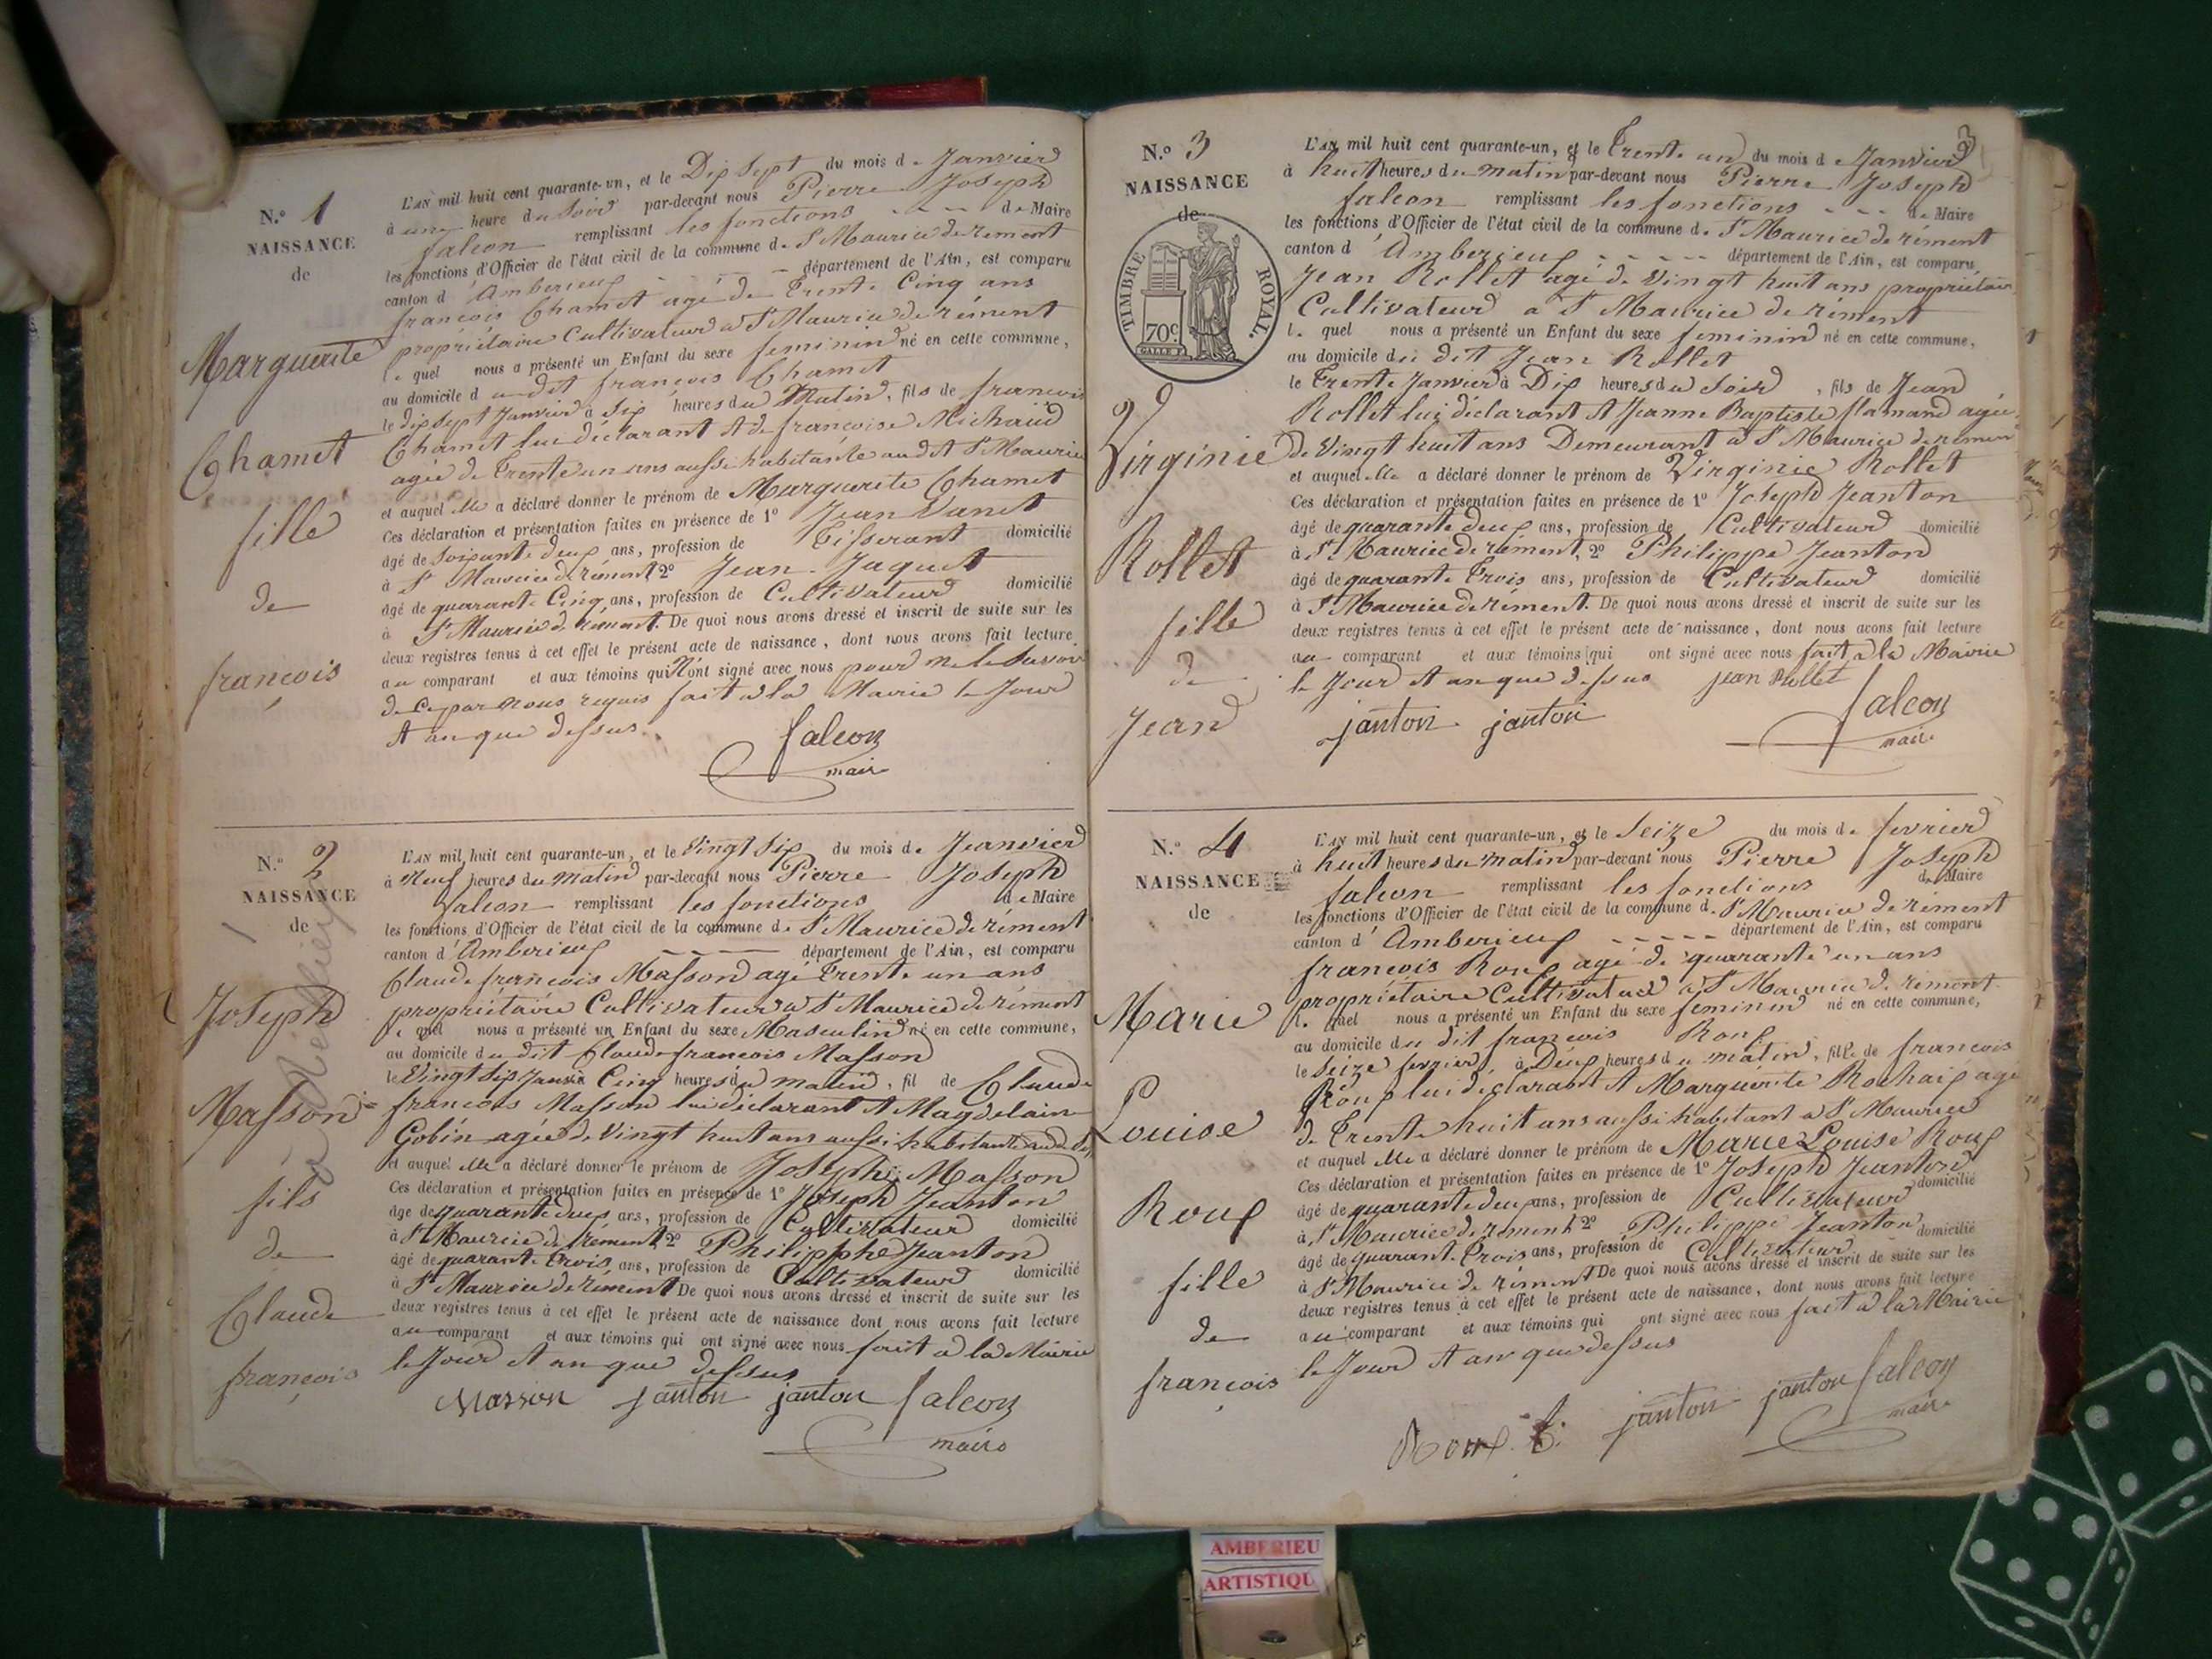 N.o 1
NAISSANCE
de
Marguerite
Chamet
fille
de
françois
L'AN mil huit cent quarante-un, et le Dix Sept du mois de Janvier
à une heure du Soir par-devant nous Pierre Joseph
falcon remplissant les fonctions de Maire
les fonctions d'Officier de l'état civil de la commune de St Maurice de rément
canton d'Amberieux département de l'Ain, est comparu
françois Chamet agé de Trente Cinq ans
propriétaire Cultivateur a St Maurice de rément
le quel nous a présenté un Enfant du sexe feminin né en cette commune,
au domicile du dit françois Chamet
le dix sept Janvier à Six heures du Matin, fils de françois
Chamet lui déclarant et de françoise Michaud
agée de Trente un ans aussi habitante au dit St Maurice
et auquel elle a déclaré donner le prénom de Marguerite Chamet
Ces déclaration et présentation faites en présence de 1o Jean Vanet
âgé de Soixante deux ans, profession de Tisserant domicilié
à St Maurice de rément 2o Jean Jaquet
âgé de quarante Cinq ans, profession de Cultivateur domicilié
à St Maurice de rément. De quoi nous avons dressé et inscrit de suite sur les
deux registres tenus à cet effet le présent acte de naissance, dont nous avons fait lecture
au comparant et aux témoins qui N'ont signé avec nous pour ne le Savoir
de ce par nous requis fait a la Mairie le Jour
et an que dessus.
falcon
maire
N.o 2
NAISSANCE
de
Joseph
Masson
fils
de
Claude
françois
L'AN mil huit cent quarante-un, et le Vingt Six du mois de Janvier
à Neuf heures du Matin par-devant nous Pierre Joseph
falcon remplissant les fonctions de Maire
les fonctions d'Officier de l'état civil de la commune de St Maurice de rément
canton d'Amberieux département de l'Ain, est comparu
Claude françois Masson agé Trente un ans
propriétaire Cultivateur a St Maurice de rément
le quel nous a présenté un Enfant du sexe Masculin né en cette commune,
au domicile du dit Claude françois Masson
le Vingt Six Janvier Cinq heures du matin, fil de Claude
françois Masson lui déclarant et Magdelaine
Gobin agée de Vingt huit ans aussi habitante
et auquel elle a déclaré donner le prénom de Joseph Masson
Ces déclaration et présentation faites en présence de 1o Joseph Jeanton
âgé de quarante deux ans, profession de Cultivateur domicilié
à St Maurice de rément 2o Philipphe Jeanton
âgé de quarante Trois ans, profession de Cultivateur domicilié
à St Maurice de rément De quoi nous avons dressé et inscrit de suite sur les
deux registres tenus à cet effet le présent acte de naissance dont nous avons fait lecture
au comparant et aux témoins qui ont signé avec nous fait a la Mairie
le Jour et an que dessus
Masson janton janton falcon
maire
3
N.o 3
NAISSANCE
de
TIMBRE ROYAL.
70c
Virginie
Rollet
fille
de
Jean
L'AN mil huit cent quarante-un, et le Trente un du mois de Janvier
à huit heures du matin par-devant nous Pierre Joseph
falcon remplissant les fonctions de Maire
les fonctions d'Officier de l'état civil de la commune de St Maurice de rément
canton d'Amberieux département de l'Ain, est comparu
Jean Rollet agé de Vingt huit ans propriétaire
Cultivateur a St Maurice de rément
le quel nous a présenté un Enfant du sexe feminin né en cette commune,
au domicile du dit Jean Rollet
le Trente Janvier à Dix heures du Soir, fils de Jean
Rollet lui déclarant et Jeanne Baptiste flamand agée
de Vingt huit ans Demeurant a St Maurice de rément
et auquel elle a déclaré donner le prénom de Virginie Rollet
Ces déclaration et présentation faites en présence de 1o Joseph Jeanton
âgé de quarante deux ans, profession de Cultivateur domicilié
à St Maurice de rément, 2o Philippe Jeanton
âgé de quarante Trois ans, profession de Cultivateur domicilié
à St Maurice de rément. De quoi nous avons dressé et inscrit de suite sur les
deux registres tenus à cet effet le présent acte de naissance, dont nous avons fait lecture
au comparant et aux témoins qui ont signé avec nous fait a la Mairie
le Jour et an que dessus jean Rollet
janton janton falcon
maire
N.o 4
NAISSANCE
de
Marie
Louise
Roux
fille
de
françois
L'AN mil huit cent quarante-un, et le Seize du mois de fevrier
à huit heures du matin par-devant nous Pierre Joseph
falcon remplissant les fonctions de Maire
les fonctions d'Officier de l'état civil de la commune de St Maurice de rément
canton d'Amberieux département de l'Ain, est comparu
françois Roux agé de quarante un ans
propriétaire Cultivateur a St Maurice de rément
le quel nous a présenté un Enfant du sexe feminin né en cette commune,
au domicile du dit françois Roux
le Seize fevrier à Deux heures du matin, fille de françois
Roux lui déclarant et Marguerite Rochaix agé
de Trente huit ans aussi habitant a St Maurice
et auquel elle a déclaré donner le prénom de Marie Louise Roux
Ces déclaration et présentation faites en présence de 1o Joseph Jeanton
âgé de quarante deux ans, profession de Cultivateur domicilié
à St Maurice de rément 2o Philippe Jeanton
âgé de quarante Trois ans, profession de Cultivateur domicilié
à St Maurice de rément De quoi nous avons dressé et inscrit de suite sur les
deux registres tenus à cet effet le présent acte de naissance, dont nous avons fait lecture
au comparant et aux témoins qui ont signé avec nous fait a la Mairie
le Jour et an que dessus
Roux f. janton janton falcon
maire
AMBERIEU
ARTISTIQU